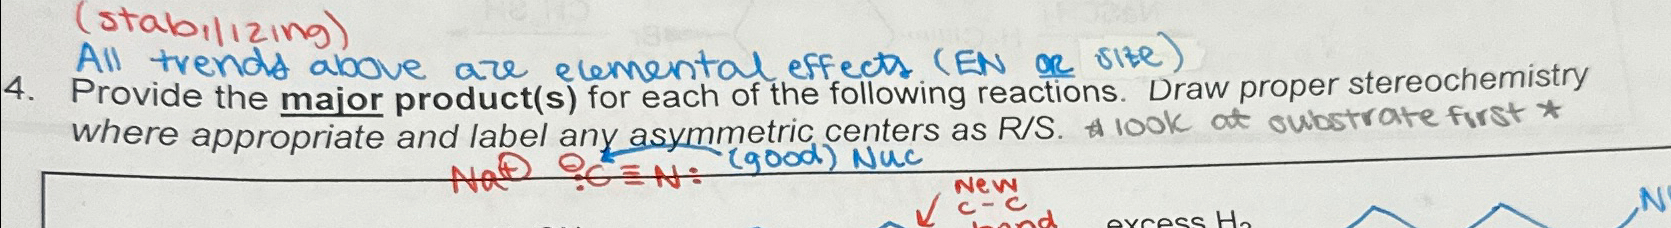 (stabilizing)
All trends above are elemental effects (EN OR size)
4. Provide the major product(s) for each of the following reactions. Draw proper stereochemistry
where appropriate and label any asymmetric centers as R/S. * look at substrate first *
Na⊕ ⊖:C≡N: (good) Nuc
New
C-C
bond excess H₂